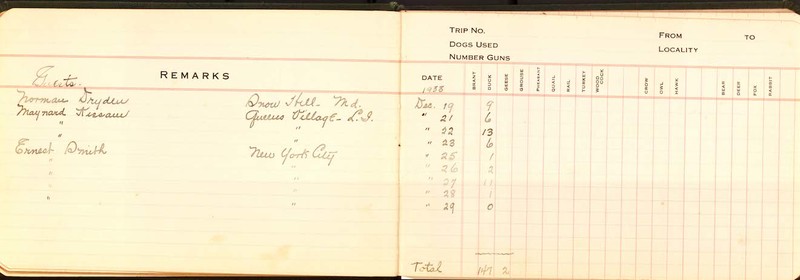 REMARKS
Guests.
Norman Dryden Snow Hill - Md.
Maynard Kissam Queens Village - L.I.
" "
Ernest Smith New York City
" "
" "
" "
" "
TRIP NO.
DOGS USED
NUMBER GUNS
FROM TO
LOCALITY
DATE BRANT DUCK GEESE GROUSE PHEASANT QUAIL RAIL TURKEY WOODCOCK CROW OWL HAWK BEAR DEER FOX RABBIT
1935
Dec. 19 9
" 21 6
" 22 13
" 23 6
" 25 1
" 26 2
" 27
" 28 1
" 29 0
Total 147 2